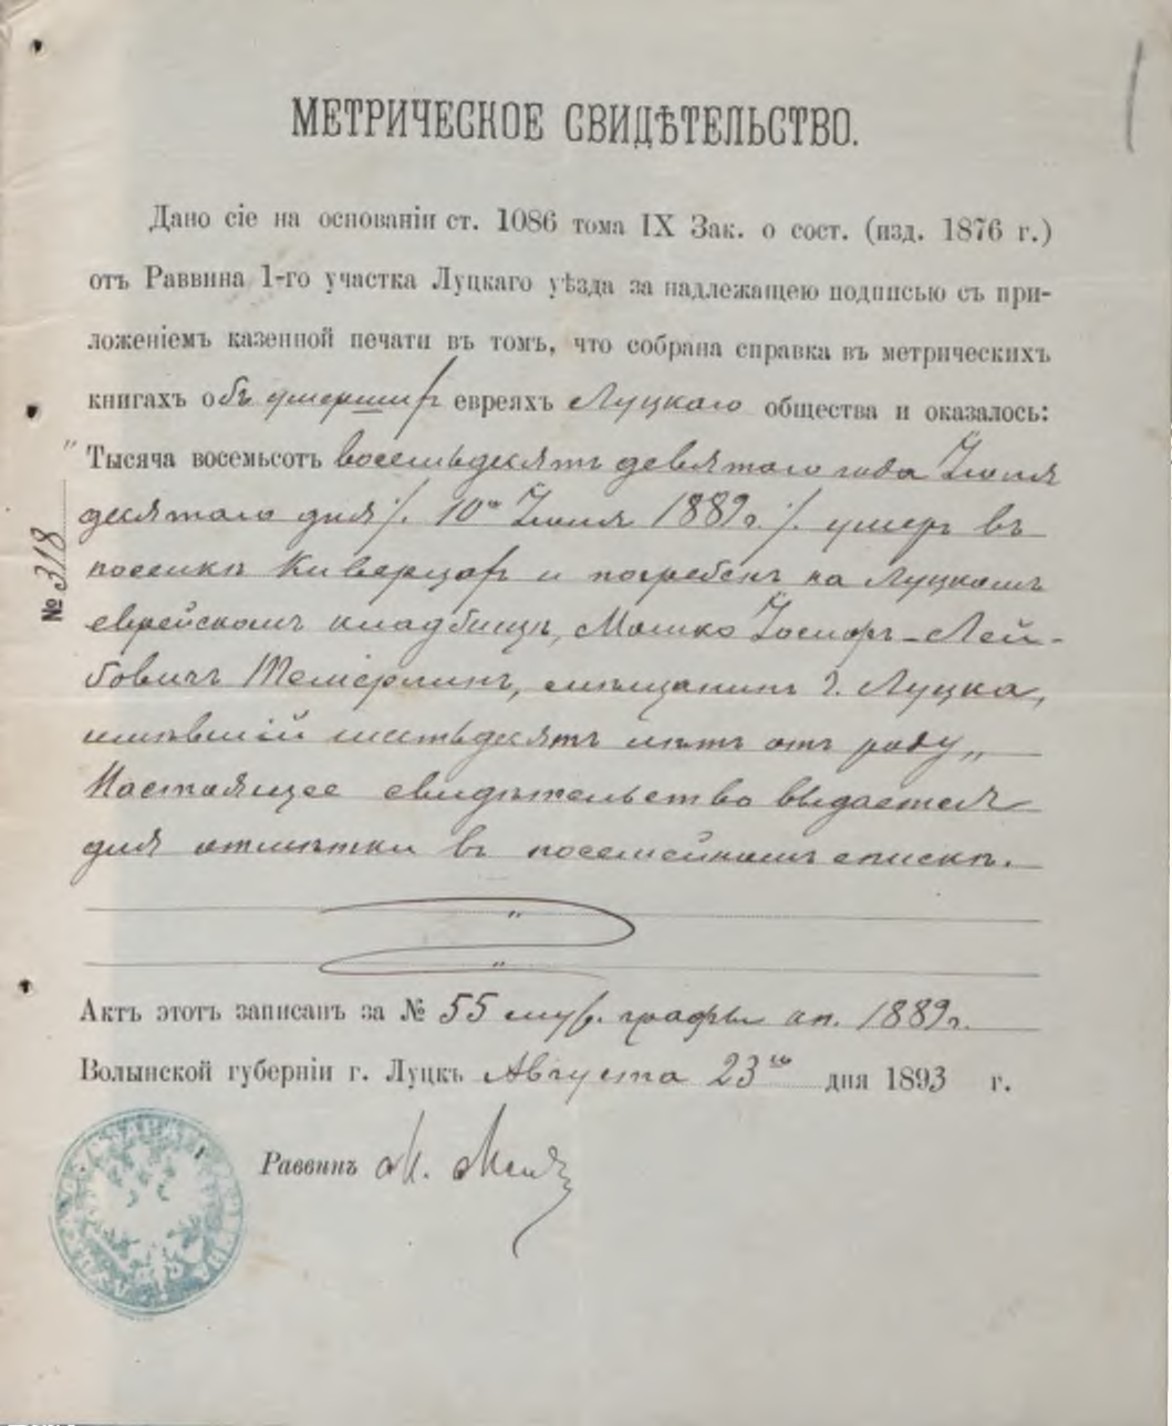 МЕТРИЧЕСКОЕ СВИДѢТЕЛЬСТВО.
Дано сіе на основаніи ст. 1086 тома IX Зак. о сост. (изд. 1876 г.)
отъ Раввина 1-го участка Луцкаго уѣзда за надлежащею подписью съ при-
ложеніемъ казенной печати въ томъ, что собрана справка въ метрическихъ
книгахъ объ умершихъ евреяхъ Луцкаго общества и оказалось:
"Тысяча восемьсотъ восемьдесятъ девятаго года Іюля
десятаго дня /. 10го Іюля 1889 г. /. умеръ въ
поселкѣ Киверцахъ и погребенъ на Луцкомъ
еврейскомъ кладбищѣ, Мошко Іосифъ-Лей-
бовичъ Темерлинъ, мѣщанинъ г. Луцка,
имѣвшій шестьдесятъ лѣтъ отъ роду„
Настоящее свидѣтельство выдается
для отмѣтки въ посемейномъ списке.
Актъ этотъ записанъ за № 55 муж. графы ап. 1889 г.
Волынской губерніи г. Луцкъ Августа 23го дня 1893 г.
Раввинъ М.
№ 318